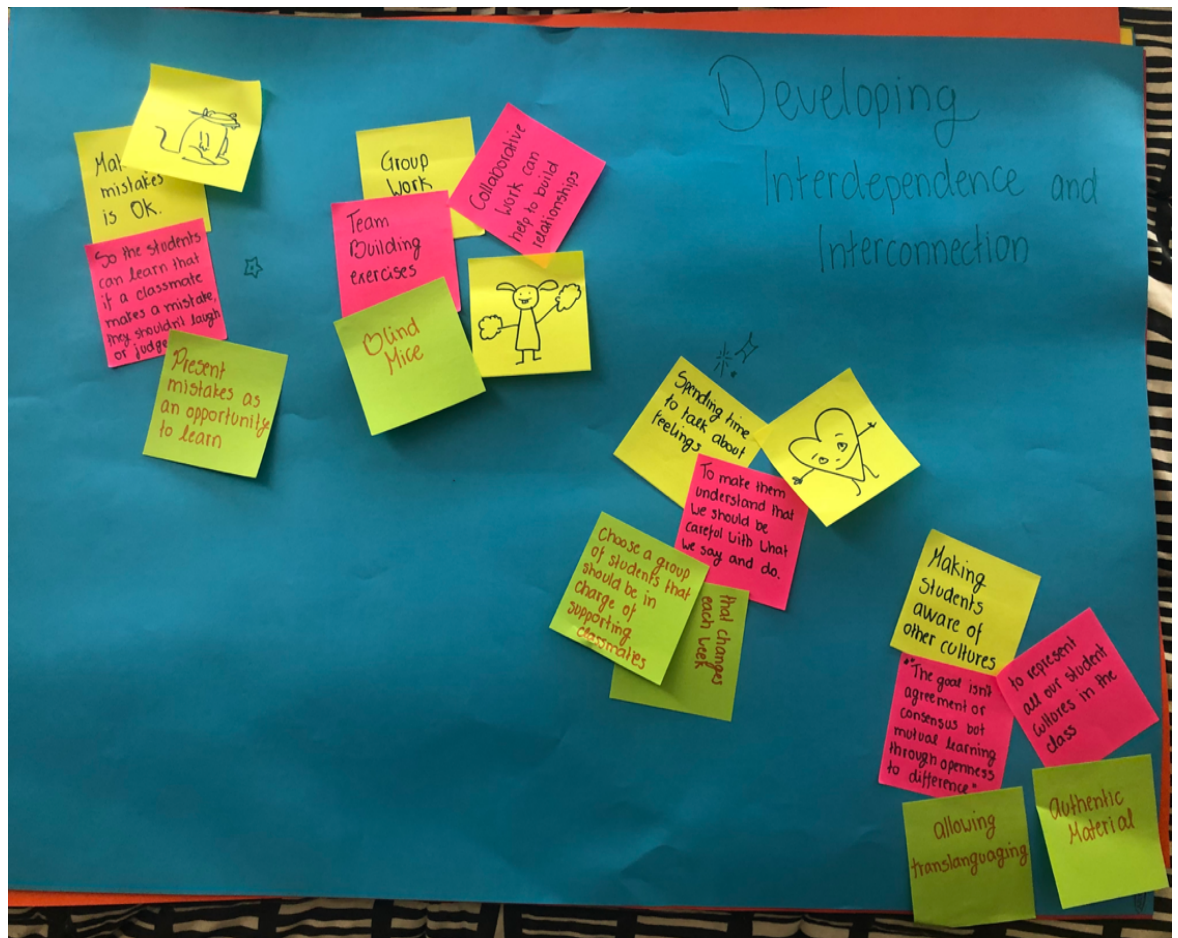 Developing
Interdependence and
Interconnection
mistakes
is OK.
So the students
can learn that
if a classmate
makes a mistake,
they shouldn't laugh
or judge
Present
mistakes as
an opportunity
to learn
Group
Work
Collaborative
work can
help to build
relationships
Team
Building
exercises
Blind
Mice
Spending time
to talk about
feelings
To make them
understand that
we should be
careful with what
we say and do.
Choose a group
of students that
should be in
charge of
supporting
classmates
that changes
each week
Making
students
aware of
other cultures
"The goal isn't
agreement or
consensus but
mutual learning
through openness
to difference"
to represent
all our student
cultures in the
class
allowing
translanguaging
Authentic
Material